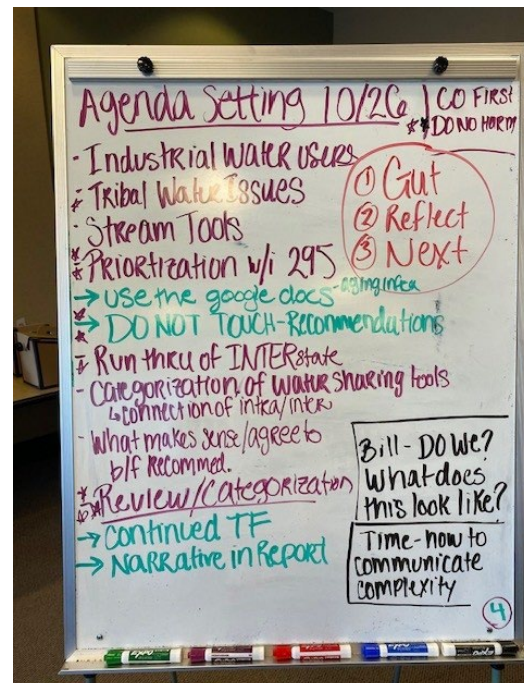 Agenda Setting 10/26
CO FIRST
DO NO HARM
- Industrial Water users
- Tribal Water Issues
- Stream Tools
Priortization w/i 295
→ use the google docs - aging infra
→ DO NOT TOUCH - Recommendations
- Run thru of INTERstate
- Categorization of water sharing tools
↳ connection of intra/inter
- What makes sense/agree to
b/f Recommed.
Review/Categorization
→ Continued TF
→ Narrative in Report
① Gut
② Reflect
③ Next
Bill - DO We?
What does
this look like?
Time - how to
communicate
complexity
4
expo
expo
expo
expo
expo